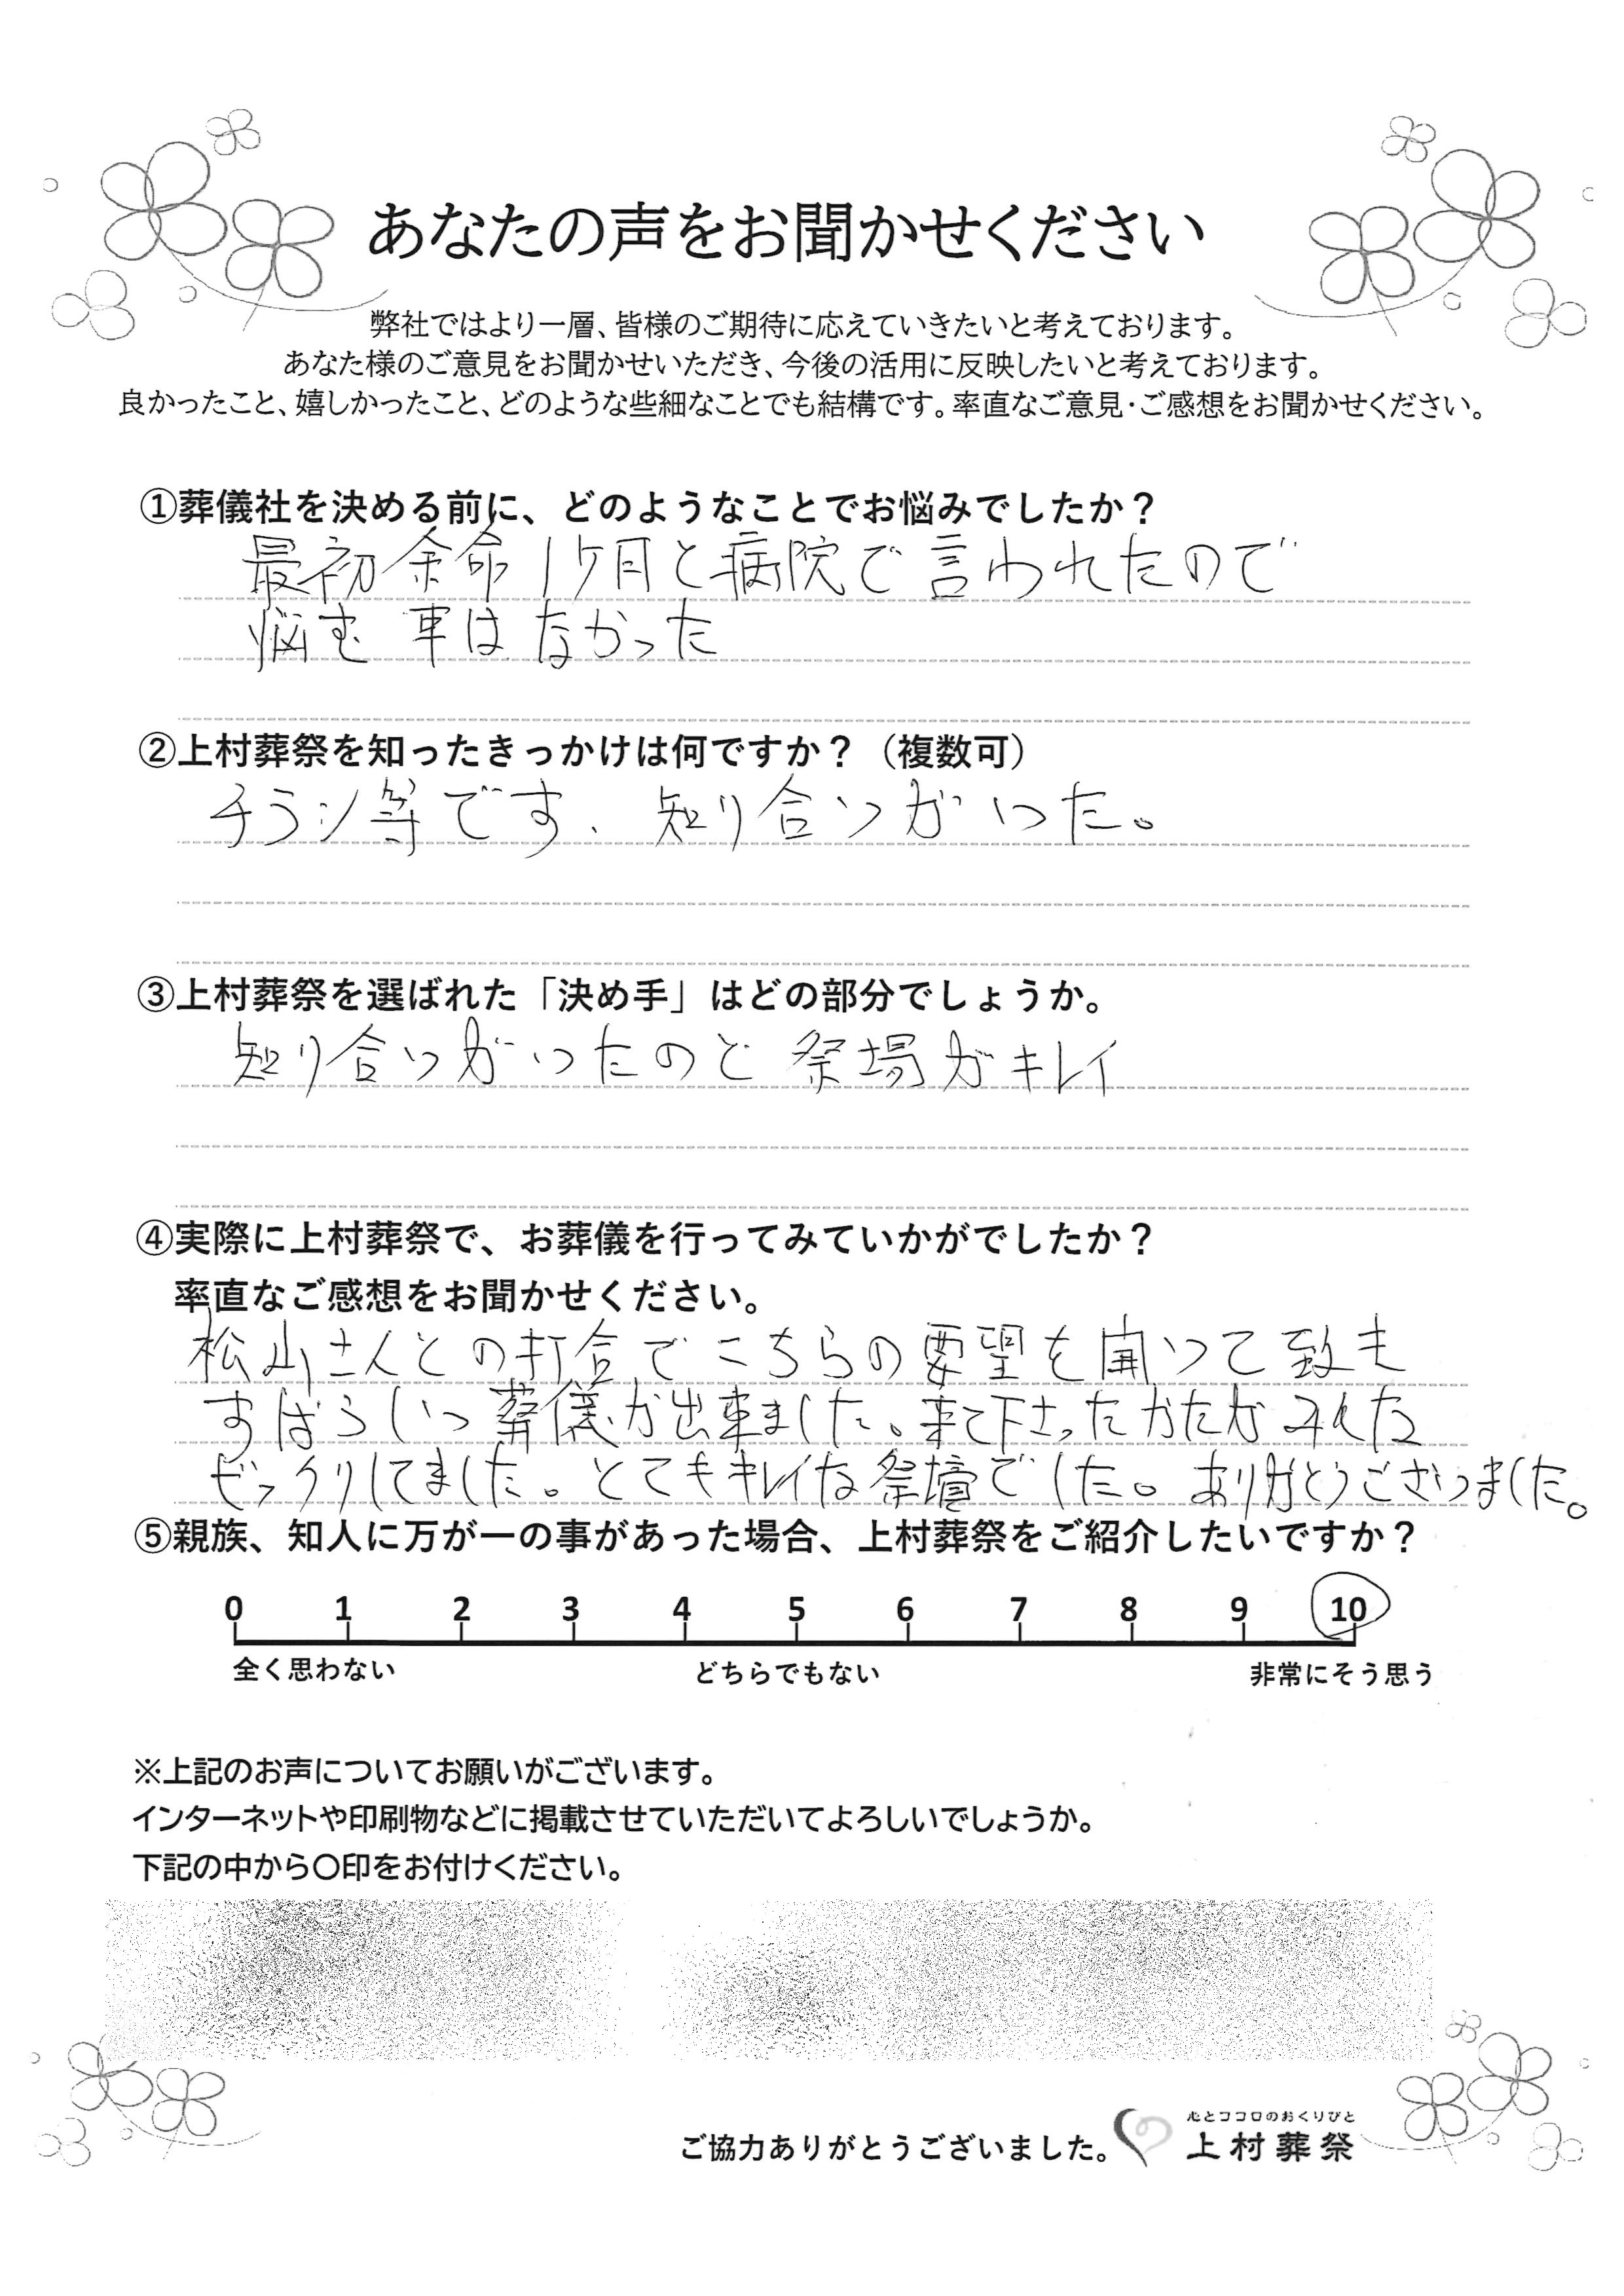 あなたの声をお聞かせください
弊社ではより一層、皆様のご期待に応えていきたいと考えております。
あなた様のご意見をお聞かせいただき、今後の活用に反映したいと考えております。
良かったこと、嬉しかったこと、どのような些細なことでも結構です。率直なご意見・ご感想をお聞かせください。
①葬儀社を決める前に、どのようなことでお悩みでしたか？
最初余命1ケ月と病院で言われたので
悩む事はなかった
②上村葬祭を知ったきっかけは何ですか？（複数可）
チラシ等です、知り合いがいた。
③上村葬祭を選ばれた「決め手」はどの部分でしょうか。
知り合いがいたのと祭場がキレイ
④実際に上村葬祭で、お葬儀を行ってみていかがでしたか？
率直なご感想をお聞かせください。
松山さんとの打合でこちらの要望を聞いて
すばらしい葬儀が出来ました。来て下さったかたがみんな
びっくりしてました。とてもキレイな祭壇でした。ありがとうございました。
⑤親族、知人に万が一の事があった場合、上村葬祭をご紹介したいですか？
0 1 2 3 4 5 6 7 8 9 10
全く思わない どちらでもない 非常にそう思う
※上記のお声についてお願いがございます。
インターネットや印刷物などに掲載させていただいてよろしいでしょうか。
下記の中から〇印をお付けください。
心とココロのおくりびと
ご協力ありがとうございました。 上村葬祭